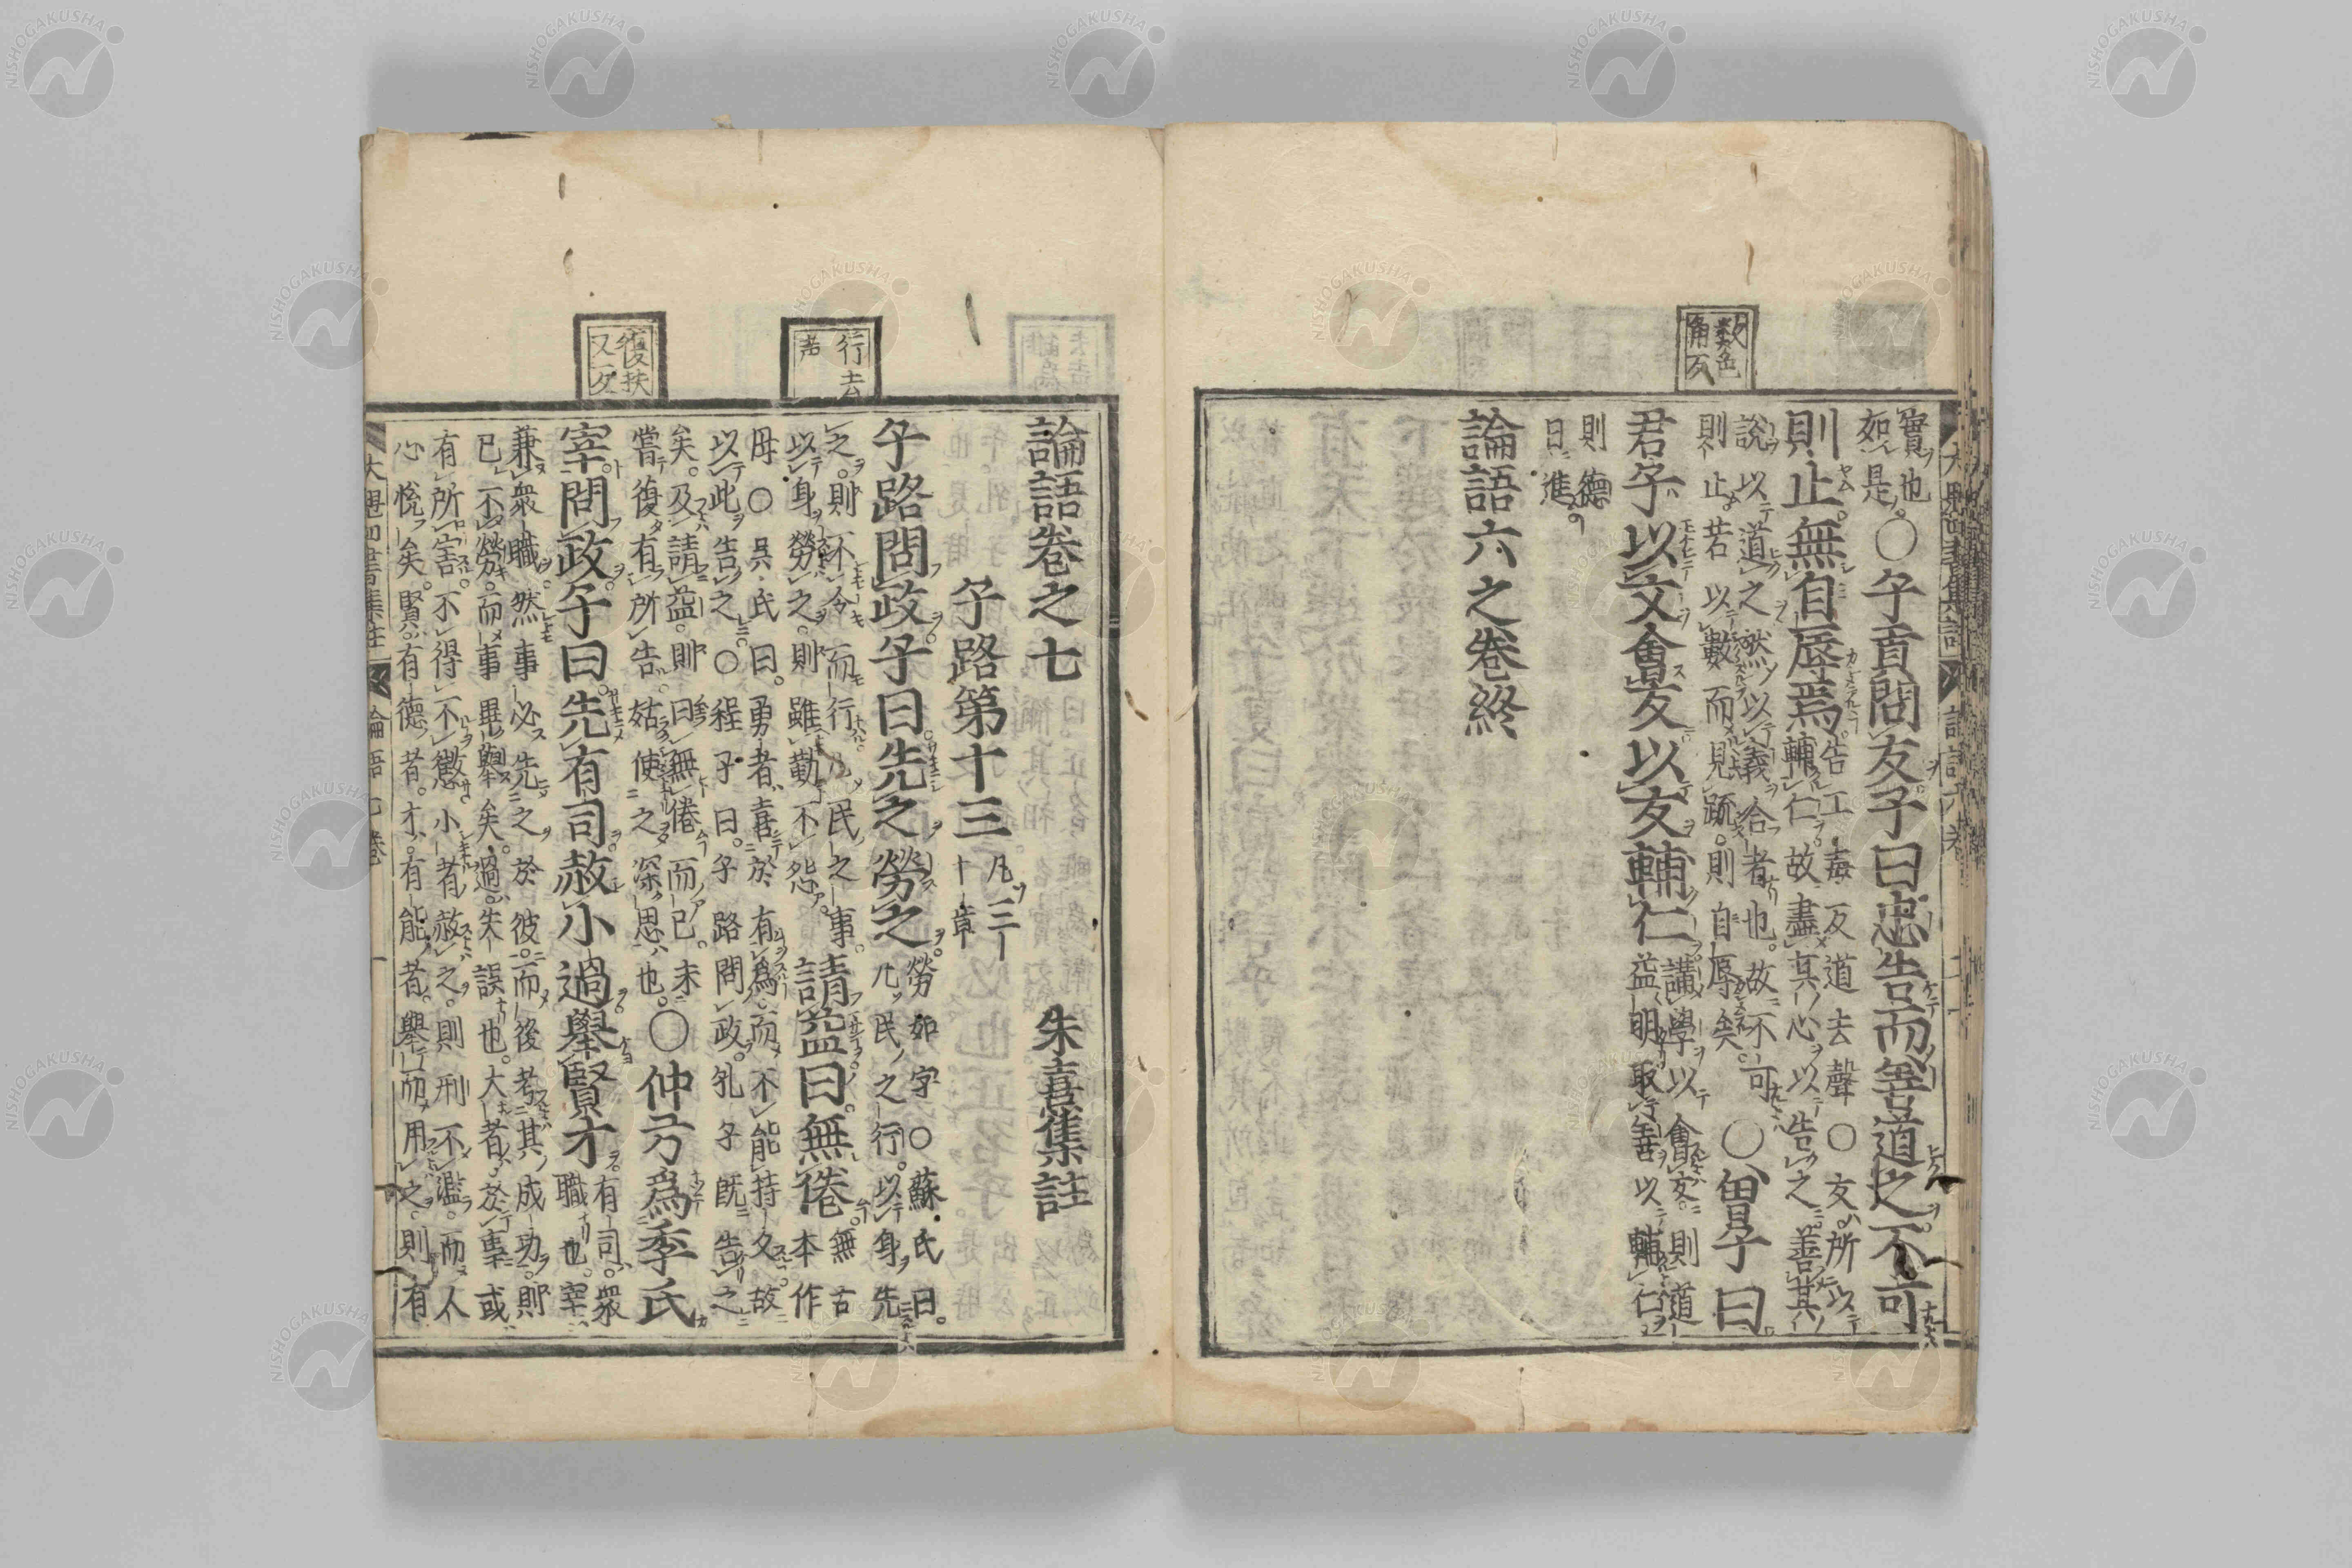 數色
角反
實也
如是。
○子貢問友子曰忠告而善道之不可
則止。無自辱焉
告工毒反道去聲○友所以
輔仁。故盡其心以告之善其
說以道之然以義合者也。故不可
則止。若以數而見疏。則自辱矣。
○曾子曰
君子以文會友以友輔仁
講學以會友則道
益明取善以輔仁
則德
日進
論語六之卷終
行去
声
復扶
又反
論語卷之七 朱熹集註
子路第十三
凡三
十章
子路問政子曰先之勞之
勞如字○蘇氏曰。
凡民之行。以身先
之。則不令而行凡民之事。
以身勞之。則雖勤不怨。
請益曰無倦
無古
本作
毋○吳氏曰。勇者喜於有爲而不能持久故
以此告之○程子曰。子路問政。孔子既告之
矣。及請益。則曰無倦而已。未
嘗復有所告。姑使之深思也。
○仲弓爲季氏
宰問政子曰。先有司赦小過舉賢才
有司。衆
職也。宰
兼衆職。然事必先之於彼。而後考其成功。則
已不勞。而事畢舉矣。過。失誤也。大者於事或
有所害。不得不懲。小者赦之。則刑不濫。而人
心悅矣。賢有德者。才。有能者。舉而用之。則有
大魁四書集註 論語七卷
NISHOGAKUSHA